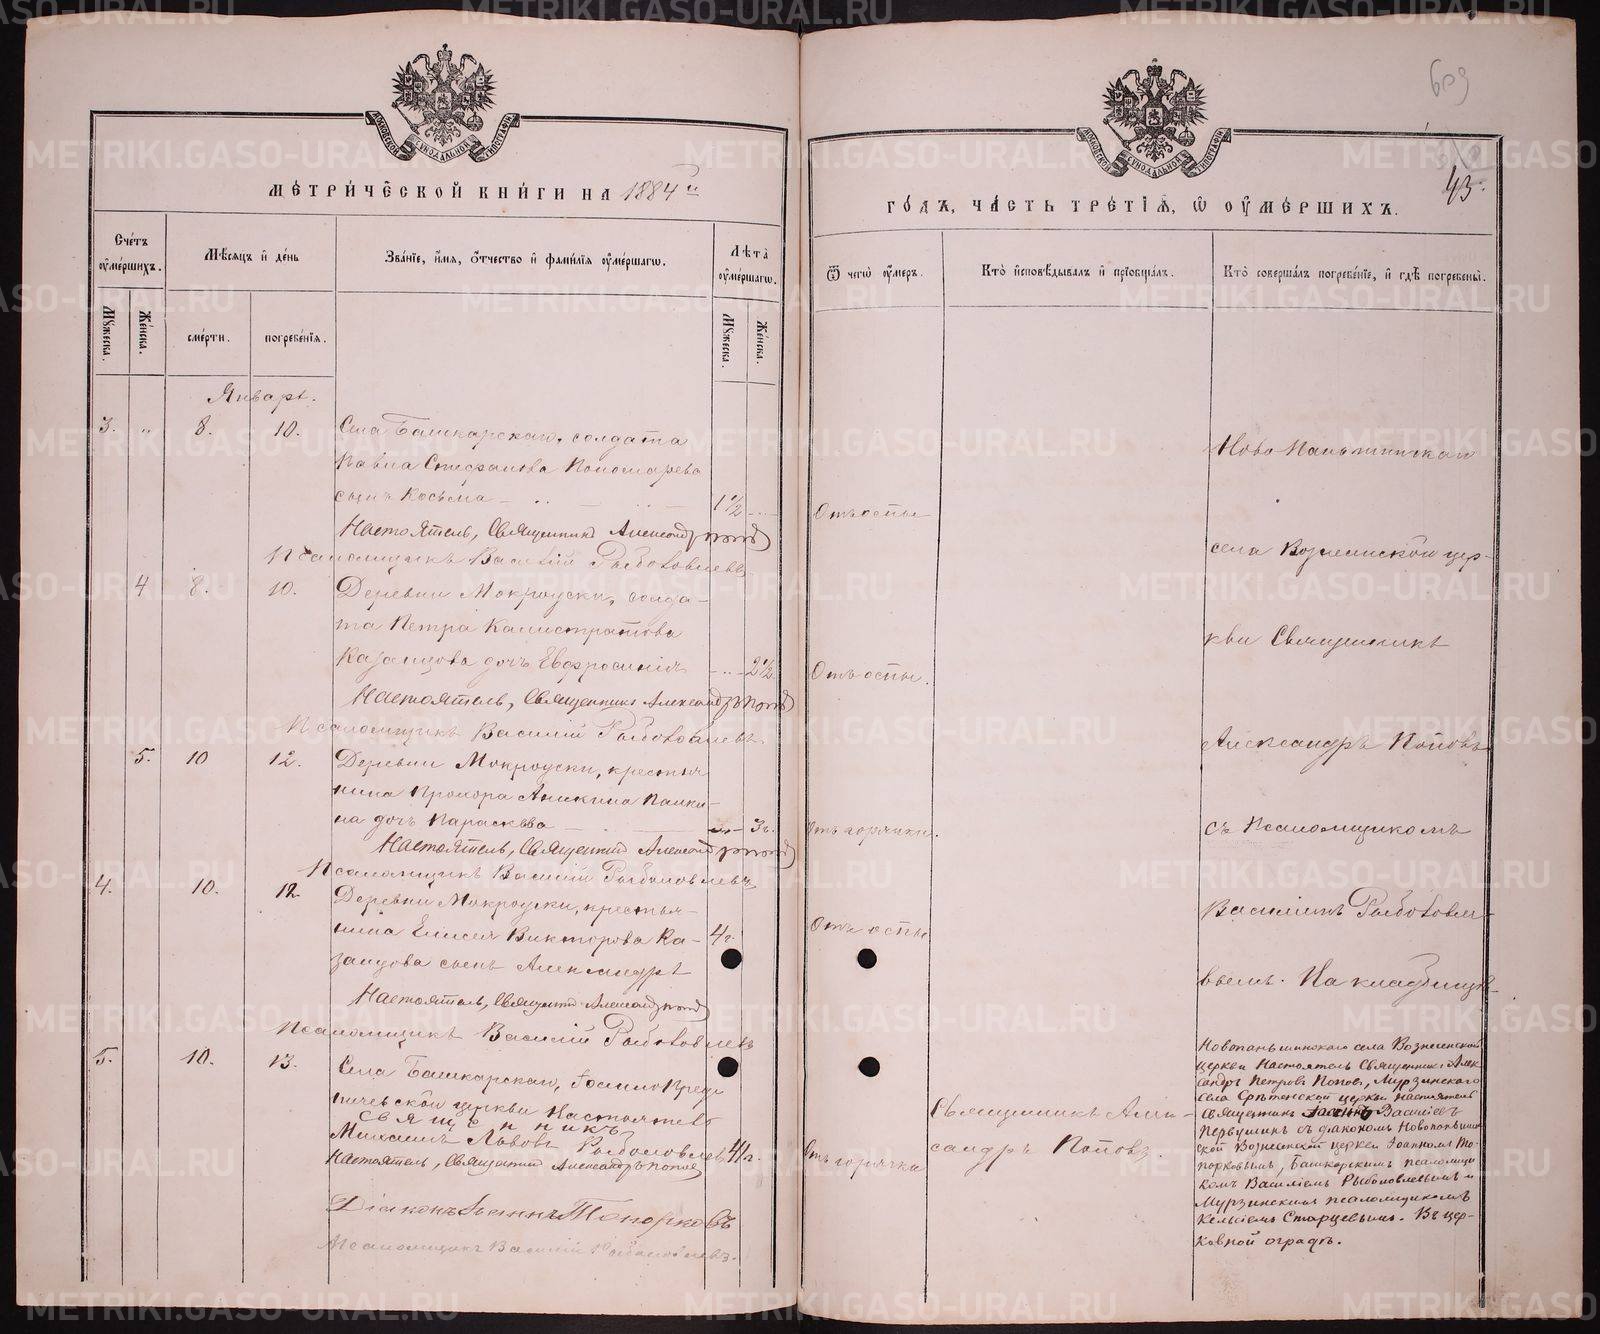 МЕТРИЧЕСКОЙ КНИГИ НА 1884й
Счетъ умершихъ.
Мѣсяцъ и день
Званіе, имя, отчество и фамилія умершаго.
Лѣта умершаго.
Мужеска.
Женска.
смерти.
погребенія.
Мужеска.
Женска.
Январь.
3. " 8. 10. Села Башкарскаго, солдата
Павла Стефанова Пономарева
сынъ Косьма 1½
Настоятель, Священникъ Александръ Поповъ
Псаломщикъ Василій Рыболовлевъ
4 8. 10. Деревни Мокроуски, солда-
та Петра Калистратова
Казанцова дочь Евфросинія 2½
Настоятель, Священникъ Александръ Поповъ
Псаломщикъ Василій Рыболовлевъ.
5. 10 12. Деревни Мокроуски, крестья
нина Прохора Аникина
на дочь Параскева 3г.
Настоятель, Священникъ Александръ Поповъ
Псаломщикъ Василій Рыболовлевъ
4. 10. 12. Деревни Мокроуски, крестья-
нина Елисея Викторова Ка- 4г.
занцова сынъ Александръ
Настоятель, Священникъ Александръ Поповъ
Псаломщикъ Василій Рыболовлевъ
5. 10. 13. Села Башкарскаго,
церкви Настоятель
Священникъ
Михаилъ Львовъ Рыболовлевъ 41г.
Настоятель, Священникъ Александръ Поповъ
Діаконъ Іоаннъ Топорковъ
Псаломщикъ Василій Рыболовлевъ.
609
43.
ГОДЪ, ЧАСТЬ ТРЕТІЯ, О УМЕРШИХЪ.
Отъ чего умеръ.
Кто исповѣдывалъ и пріобщалъ.
Кто совершалъ погребеніе, и гдѣ погребены.
Ново Паньшинскаго
Отъ оспы
села Вознесенской цер-
кви Священникъ
Отъ оспы.
Александръ Поповъ
съ Псаломщикомъ
Отъ горячки.
Василіемъ Рыболовле-
Отъ оспы
вымъ. На кладбищѣ.
Новопаньшинскаго села Вознесенской
церкви Настоятель Священникъ Алек-
сандръ Петровъ Поповъ, Мурзинского
села Срѣтенской церкви настоятель
Священникъ Василіевъ
Первушинъ съ діакономъ Новопаньшин
ской Вознесенской церкви Іоанномъ То-
порковымъ, Башкарскимъ псаломщи
комъ Василіемъ Рыболовлевымъ и
Мурзинскимъ псаломщикомъ
Кельсіемъ Старцевымъ. Въ цер-
ковной оградѣ.
Священникъ Алек-
сандръ Поповъ.
Отъ горячки
METRIKI.GASO-URAL.RU